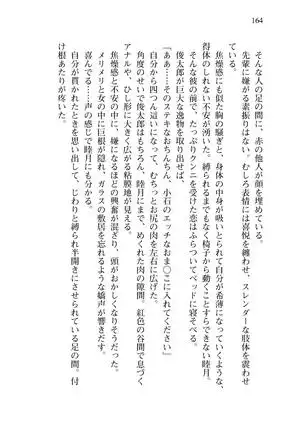 164
そんな人の足の間に、赤の他人が顔を埋めている。
先輩に嫌がる素振りはない。むしろ表情には喜悦を纏わせ、スレンダーな肢体を震わせ
ている。
焦燥感にも似た胸の騒ぎと、身体の中身が吸い取られて自分が希薄になっていくような、
得体のしれない不安が湧いた。縛られるまでもなく椅子から動くことすらできない睦月。
俊太郎が巨大な逸物を取り出せば、たっぷりクンニを受けた恋はふらついてベッドに寝そべる。
「ああ……そのステキなおちんちん、小石のエッチなおま〇こに入れてください」
自分から四つん這いになって、むちっとお尻の肉を左右に広げた。
角度のせいで俊太郎はもちろん、睦月にまで、めくれた肉の隙間、紅色の谷間で息づく
アナルや、ひし形に大きく広がる粘膜地が見える。
焦燥感と不安の中に、嫌になるほどの興奮が混ざり、頭がおかしくなりそうだった。
メリメリと女の中に巨根が隠れ、ガラスの敷居を忘れるような嬌声が響きだす。
喜んでる……声の感じで睦月にも分かる。
自分が貫かれたときを思い出して、じわりと縛られ半開きにさせられている足の間。付
け根あたりが疼いた。